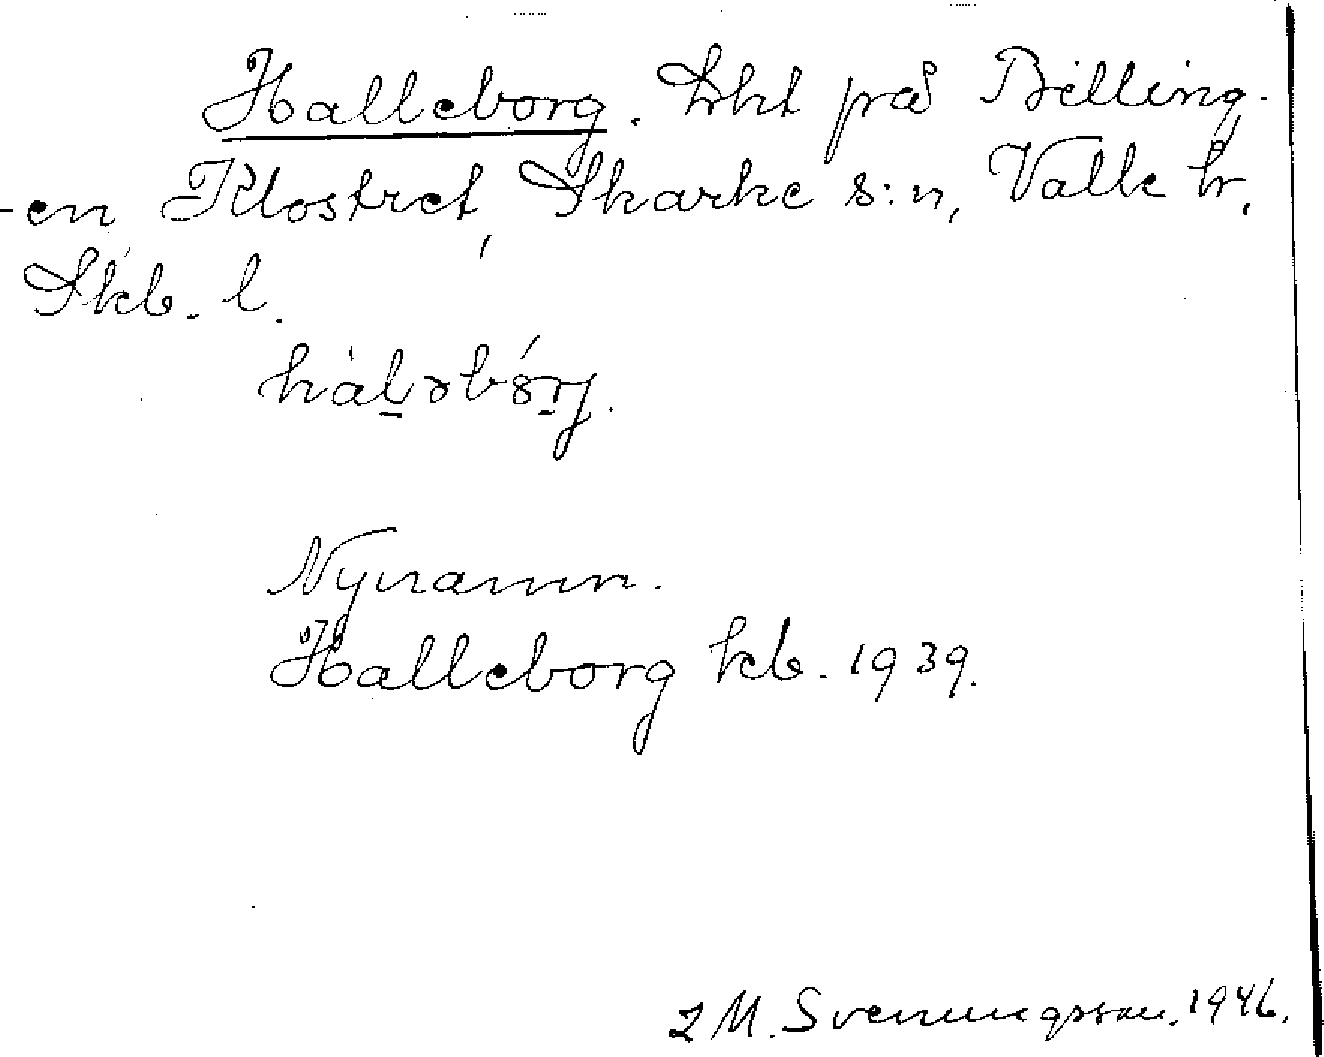 Halleborg. Lht på Billing-
-en Klostret, Skarke s:n, Valle hr,
Skb. l.
Nynamn.
Halleborg kb. 1939.
M. Svenungsson. 1946.